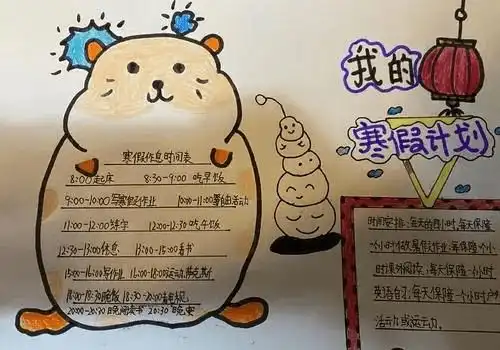 我的
寒假计划
寒假作息时间表
8:00起床 8:30-9:00 吃早饭
9:00-10:00写寒假作业 10:00-11:00 活动
11:00-12:00练字 12:00-12:30 吃午饭
12:30-13:00休息 13:00-15:00看书
15:00-16:00写作业 16:00-18:00运动
18:00-18:30晚餐 18:30-20:00看电视
20:00-20:30 晚间读书 20:30 晚安
时间安排:每天的 小时,每天保障
一个小时做寒假作业,再保障个小
时课外阅读,每天保障一个小时
英语自习,每天保障一个小时户外
活动力或运动力。